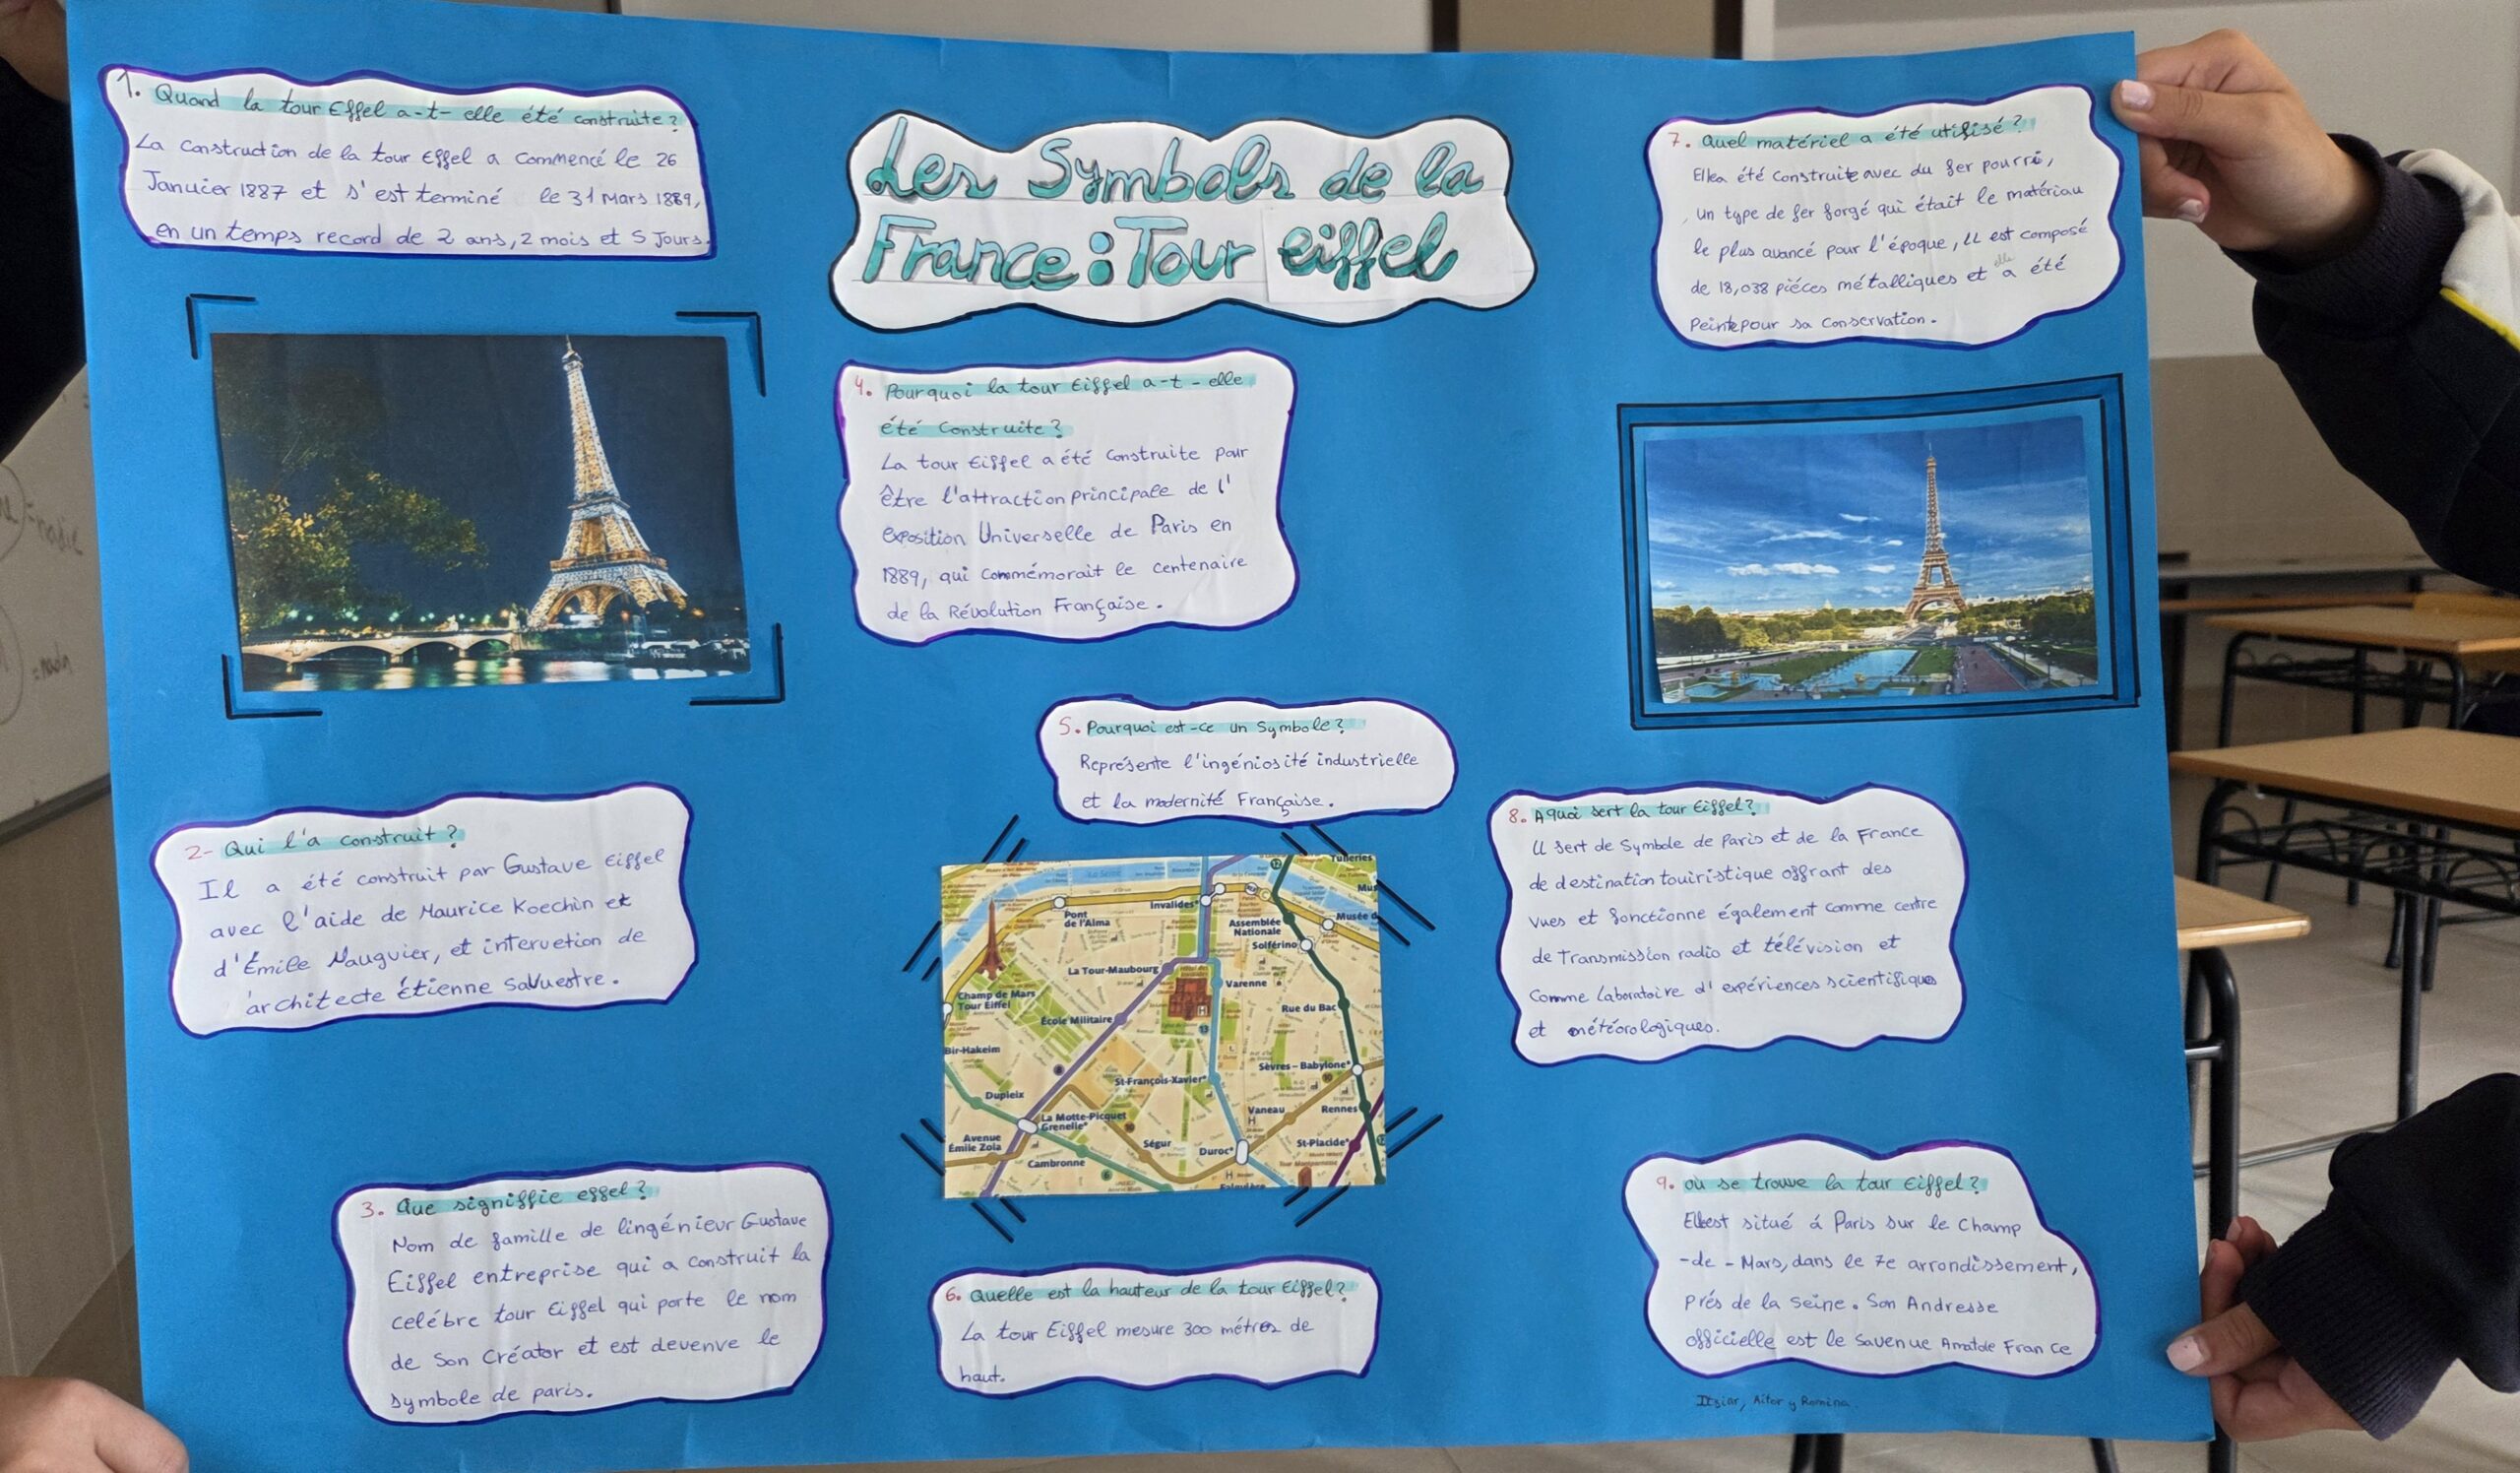 Les Symbols de la
France: Tour eiffel
1. Quand la tour Effel a-t- elle été construite?
La construction de la tour Effel a commencé le 26
Januier 1887 et s'est terminé le 31 Mars 1889,
en un temps record de 2 ans, 2 mois et 5 Jours.
2- Qui l'a construit?
Il a été construit par Gustave Eiffel
avec l'aide de Maurice Koechin et
d'Émile Nauguier, et intervetion de
architecte Étienne Salvestre.
3. Que signiffie effel?
Nom de famille de lingénieur Gustave
Eiffel entreprise qui a construit la
celébre tour Eiffel qui porte le nom
de Son Créator et est devenve le
symbole de paris.
4. Pourquoi la tour Eiffel a-t-elle
été Construite?
La tour Eiffel a été Construite pour
être l'attraction principale de l'
exposition Universelle de Paris en
1889, qui Commémorait le centenaire
de la Révolution Française.
5. Pourquoi est-ce un Symbole?
Représente l'ingéniosité industrielle
et la modernité Française.
Tuileries
Invalides
Pont
de l'Alma
Assemblée
Nationale
Musée d
Solférino
La Tour-Maubourg
Varenne
Champ de Mars
Tour Eiffel
École Militaire
Rue du Bac
Bir-Hakeim
St-François-Xavier
Sèvres – Babylone
Dupleix
La Motte-Picquet
Grenelle
Vaneau
Rennes
Avenue
Émile Zola
Ségur
Duroc
St-Placide
Cambronne
6. Quelle est la hauteur de la tour Eiffel?
La tour Eiffel mesure 300 métres de
haut.
7. Quel matériel a été utilisé?
Ellea été construite avec du fer pourri,
un type de fer forgé qui était le matériau
le plus avancé pour l'époque, il est composé
de 18,038 piéces métalliques et elle a été
Peinte pour sa Conservation.
8. A quoi sert la tour Eiffel?
Il sert de Symbole de Paris et de la France
de destination touiristique offrant des
vues et fonctionne également comme centre
de Transmission radio et télévision et
Comme laboratoire d'expériences scientifiques
et météorologiques.
9. où se trouve la tour Eiffel?
Elle est situé á Paris sur le Champ
-de - Mars, dans le 7e arrondissement,
Prés de la Seine. Son Andresse
officielle est le 5avenue Anatole France
Itziar, Aitor y Romina